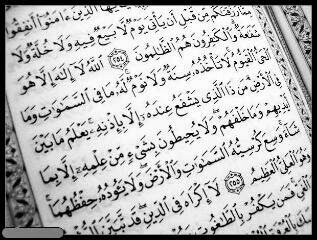 الَّذِينَ ءَامَنُوٓا۟ أَنفِقُوا۟
مِمَّا رَزَقْنَٰكُم مِّن قَبْلِ أَن يَأْتِىَ يَوْمٌ لَّا بَيْعٌ فِيهِ وَلَا خُلَّةٌ وَلَا
شَفَٰعَةٌ وَٱلْكَٰفِرُونَ هُمُ ٱلظَّٰلِمُونَ ٢٥٤ ٱللَّهُ لَآ إِلَٰهَ إِلَّا هُوَ
ٱلْحَىُّ ٱلْقَيُّومُ لَا تَأْخُذُهُۥ سِنَةٌ وَلَا نَوْمٌ لَّهُۥ مَا فِى ٱلسَّمَٰوَٰتِ وَمَا
فِى ٱلْأَرْضِ مَن ذَا ٱلَّذِى يَشْفَعُ عِندَهُۥٓ إِلَّا بِإِذْنِهِۦ يَعْلَمُ مَا بَيْنَ
أَيْدِيهِمْ وَمَا خَلْفَهُمْ وَلَا يُحِيطُونَ بِشَىْءٍ مِّنْ عِلْمِهِۦٓ إِلَّا بِمَا
شَآءَ وَسِعَ كُرْسِيُّهُ ٱلسَّمَٰوَٰتِ وَٱلْأَرْضَ وَلَا يَـُٔودُهُۥ حِفْظُهُمَا
وَهُوَ ٱلْعَلِىُّ ٱلْعَظِيمُ ٢٥٥ لَآ إِكْرَاهَ فِى ٱلدِّينِ قَد تَّبَيَّنَ
ٱلْغَىِّ فَمَن يَكْفُرْ بِٱلطَّٰغُوتِ